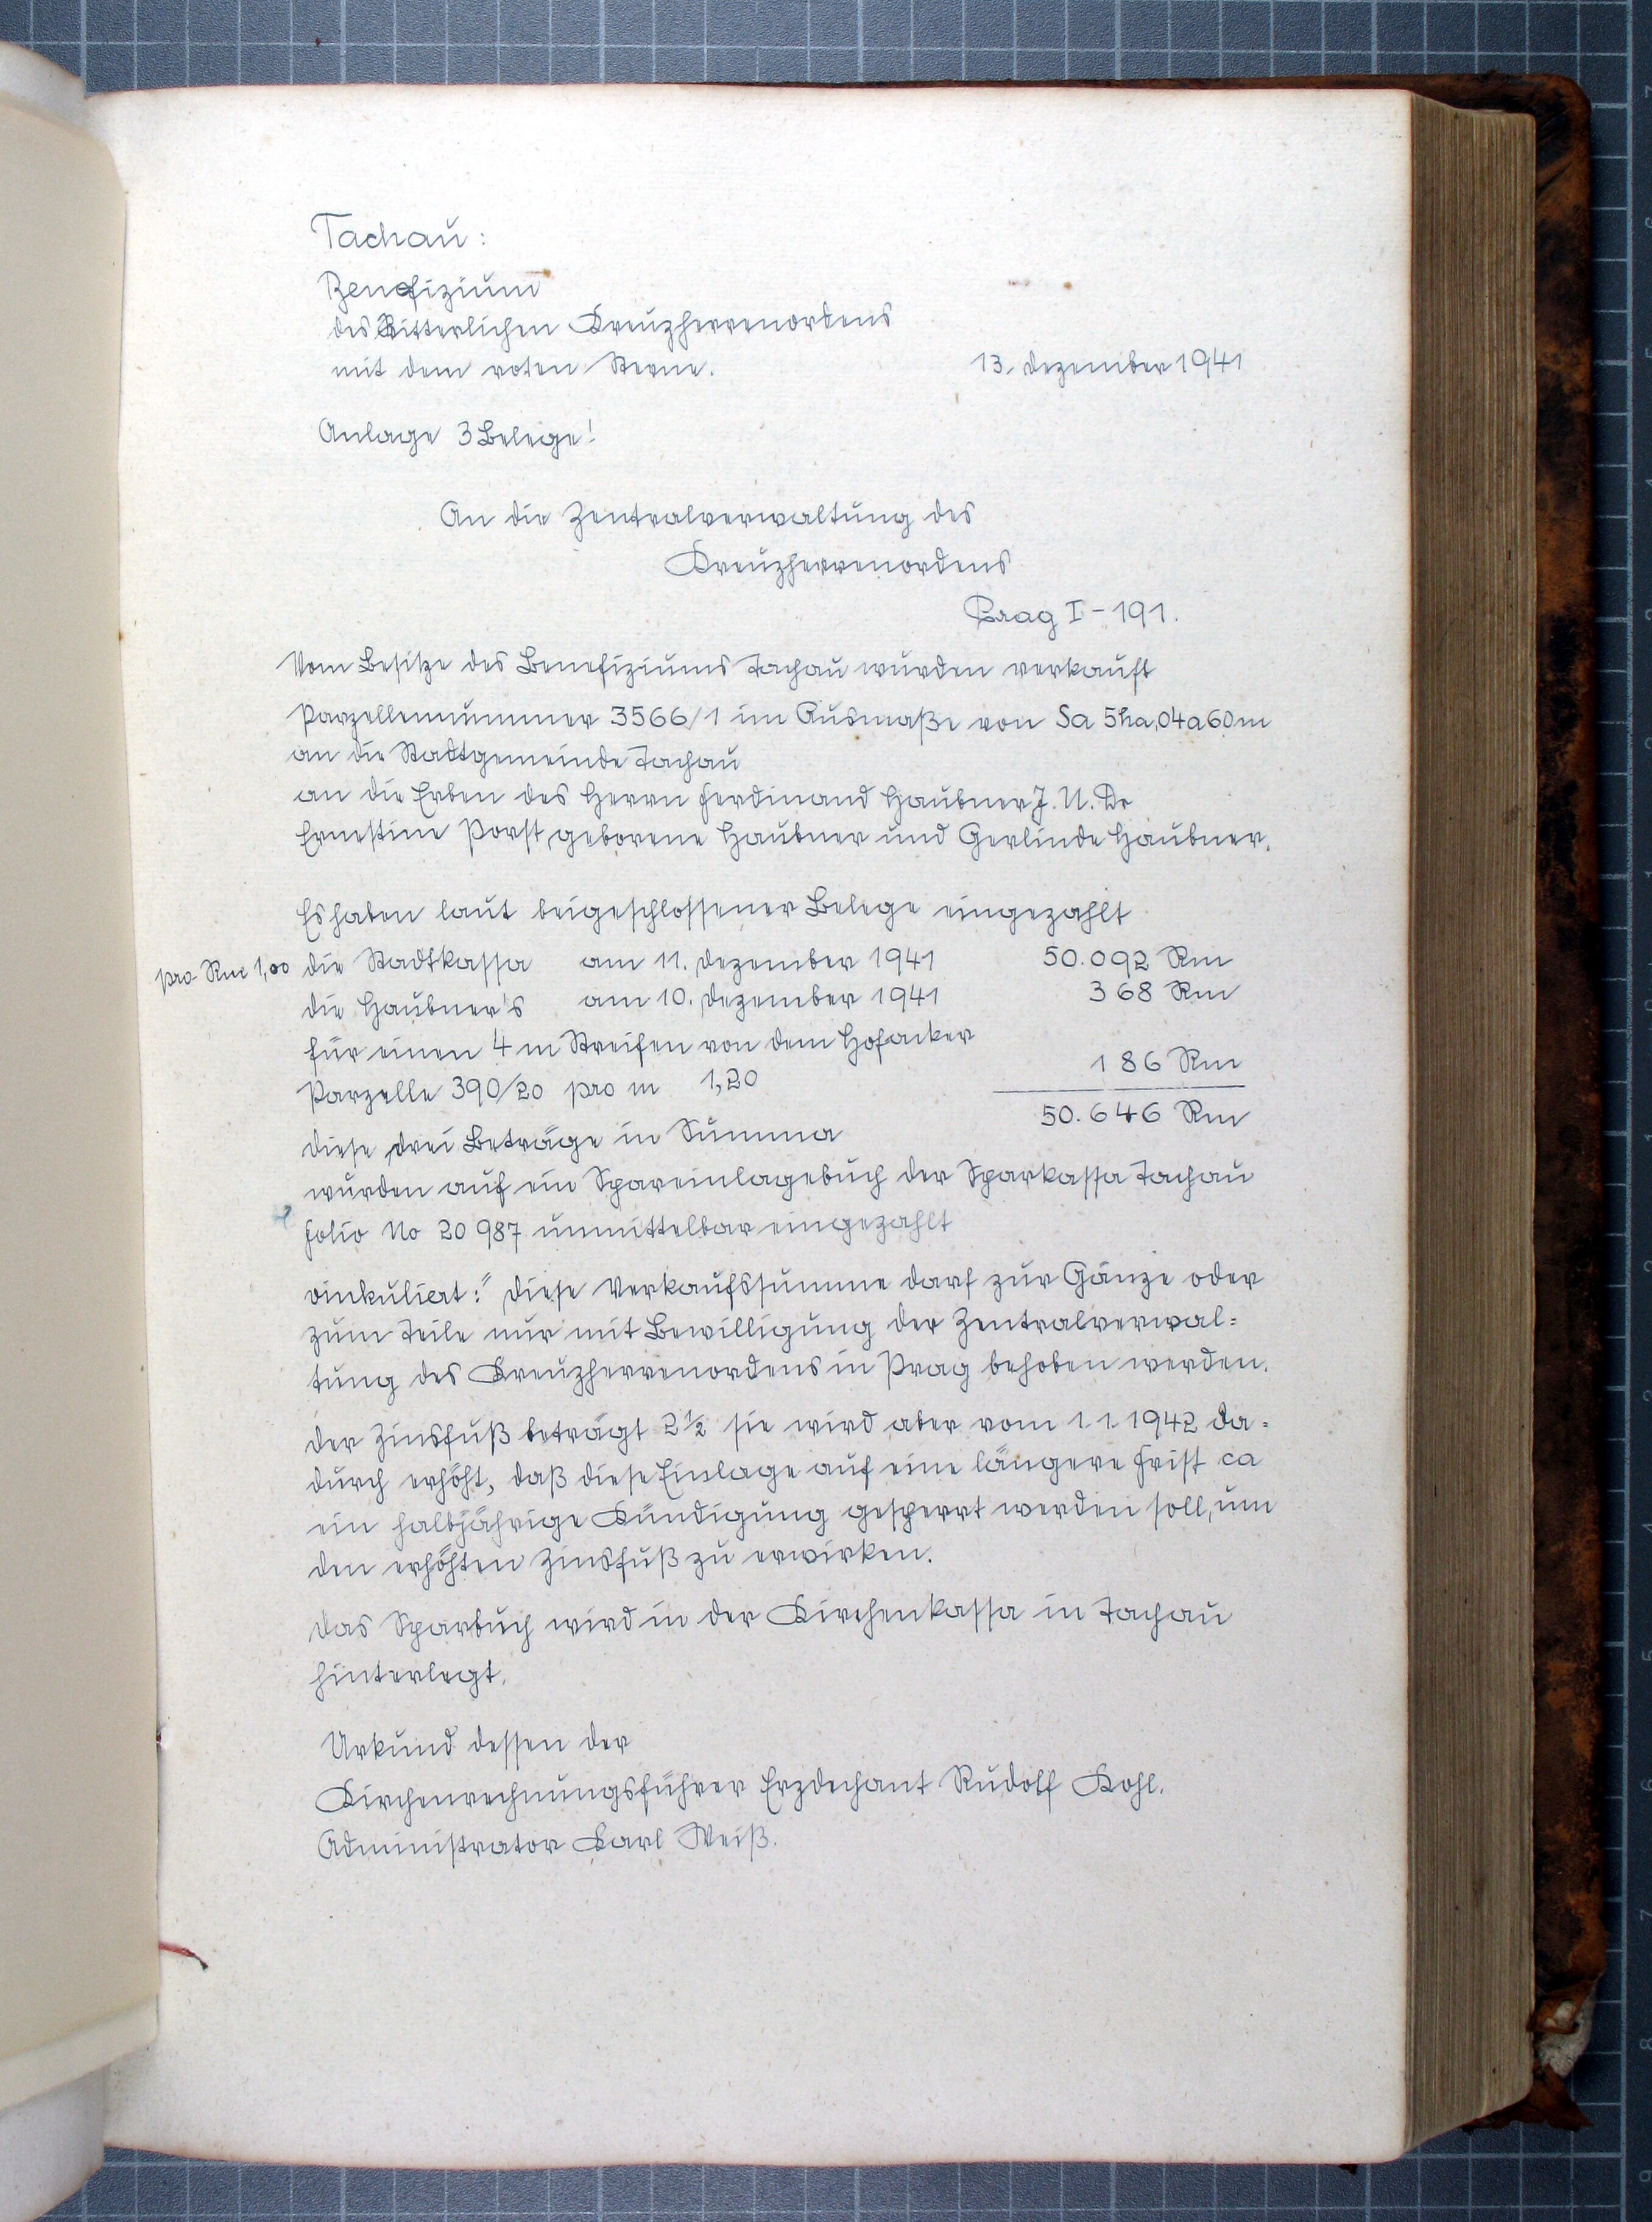 Tachau:
Benefizium
des Ritterlichen Kreuzherrenordens
mit dem roten Sterne. 13. Dezember 1941
Anlage 3 Belege!
An die Zentralverwaltung des
Kreuzherrenordens
Prag I - 191.
Vom Besitze des Benefiziums Tachau wurden verkauft
Parzellennummer 3566/1 im Ausmaße von Sa 5ha,04a60m
an die Stadtgemeinde Tachau
an die Erben des Herrn Ferdinand Haubner J. U. Dr
Ernestine Porst geborene Haubner und Gerlinde Haubner.
Es haben laut beigeschlossener Belege eingezahlt
pro Rm 1,00 die Stadtkassa am 11. Dezember 1941 50.092 Rm
die Haubner's am 10. Dezember 1941 368 Rm
für einen 4 m Streifen von dem Hofacker
Parzelle 390/20 pro m 1,20 186 Rm
diese drei Beträge in Summa 50.646 Rm
wurden auf ein Spareinlagebuch der Sparkassa Tachau
Folio No 20 987 unmittelbar eingezahlt
vinkuliert:" Diese Verkaufssumme darf zur Gänze oder
zum Teile nur mit Bewilligung der Zentralverwal=
tung des Kreuzherrenordens in Prag behoben werden.
Der Zinsfuß beträgt 2½ sie wird aber vom 1.1.1942 da=
durch erhöht, daß diese Einlage auf eine längere Frist ca
ein halbjährige Kündigung gesperrt werden soll, um
den erhöhten Zinsfuß zu erwirken.
Das Sparbuch wird in der Kirchenkassa in Tachau
hinterlegt.
Urkund dessen der
Kirchenrechnungsführer Erzdechant Rudolf Kohl.
Administrator Karl Weiß.